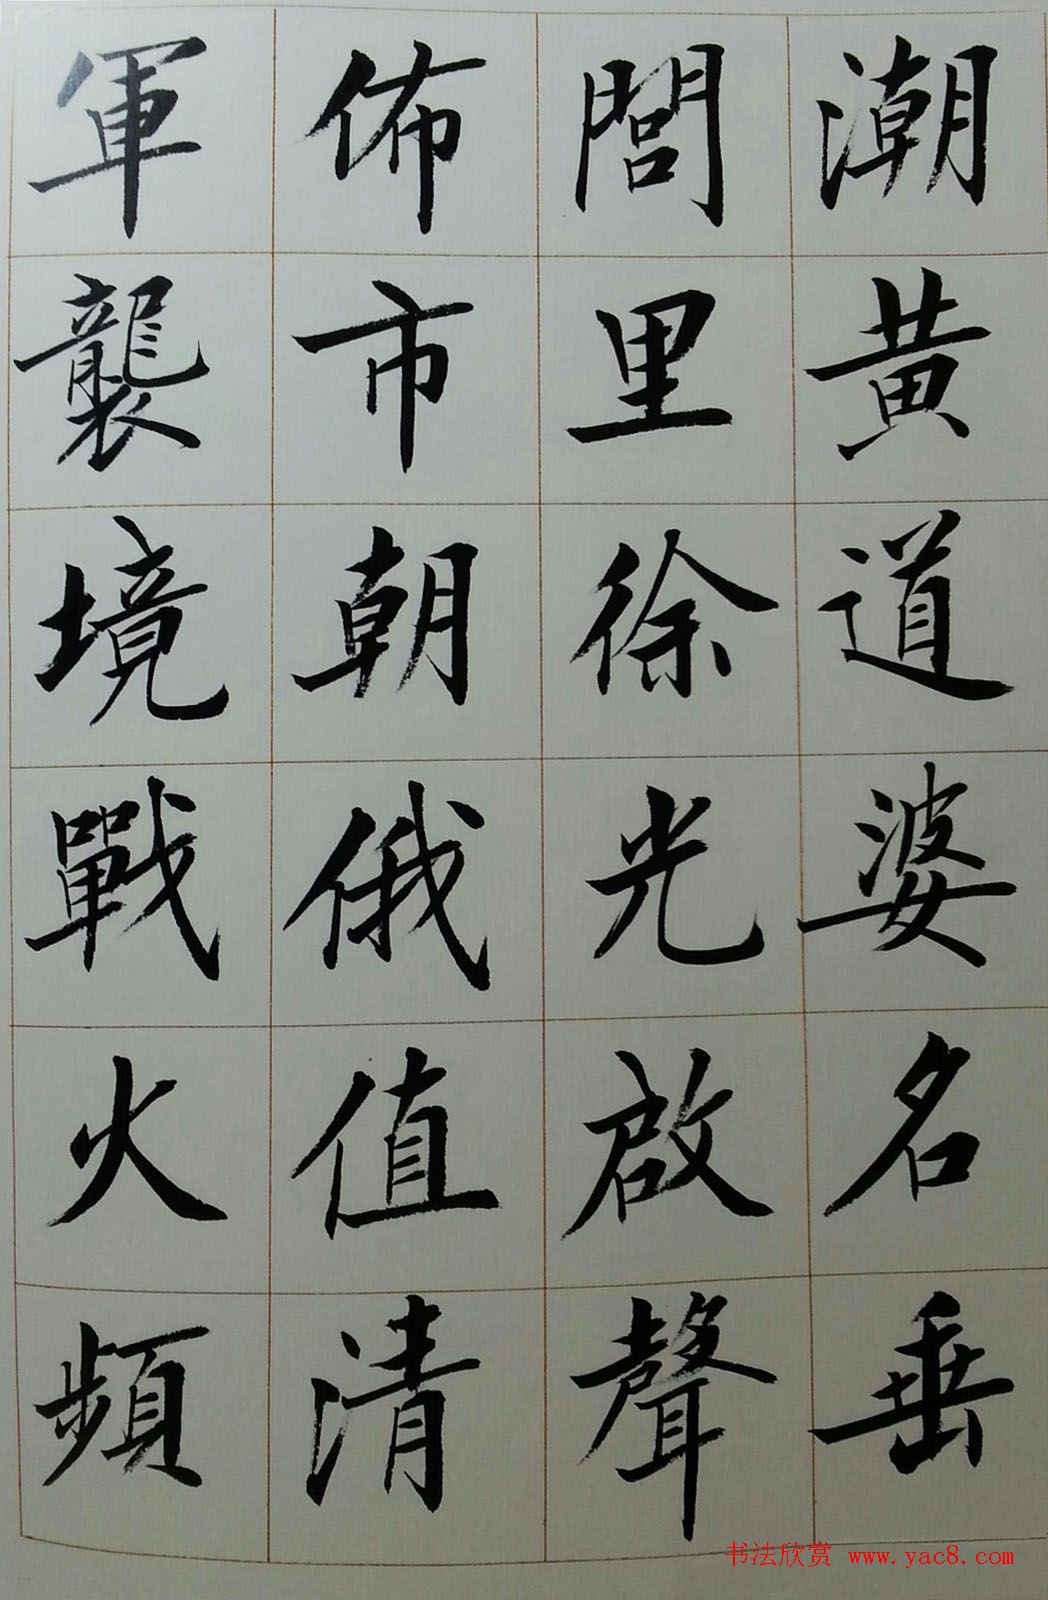 潮黃道婆名垂
閭里徐光啟聲
佈市朝俄值清
軍襲境戰火頻
书法欣赏 www.yac8.com